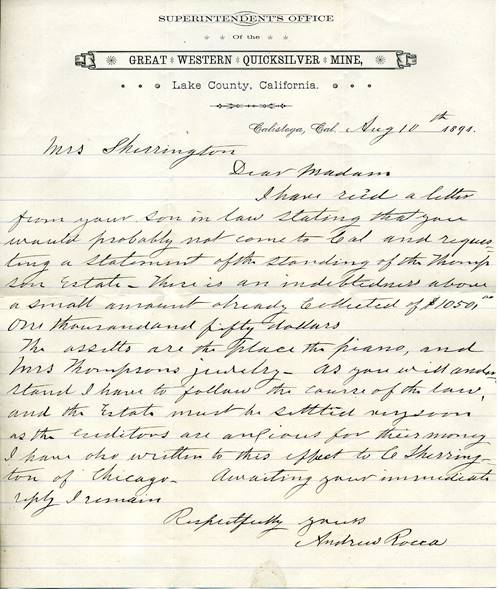 SUPERINTENDENT'S OFFICE
Of the
GREAT WESTERN QUICKSILVER MINE,
Lake County, California.
Calistoga, Cal. Aug 10th 1891.
Mrs Sherrington
Dear Madam
I have recd a letter
from your son in law stating that you
would probably not come to Cal and reques
ting a statement of the standing of the Thomp
son Estate - There is an indebtedness above
a small amount already collected of $1050,00
One thousand and fifty dollars
The assetts are the place the piano, and
Mrs Thompsons jewelry - As you will under
stand I have to follow the course of the law,
and the Estate must be settled very soon
as the creditors are anxious for their money
I have also written to this effect to C Sherring-
ton of Chicago - Awaiting your immediate
reply I remain
Respectfully yours
Andrew Rocca